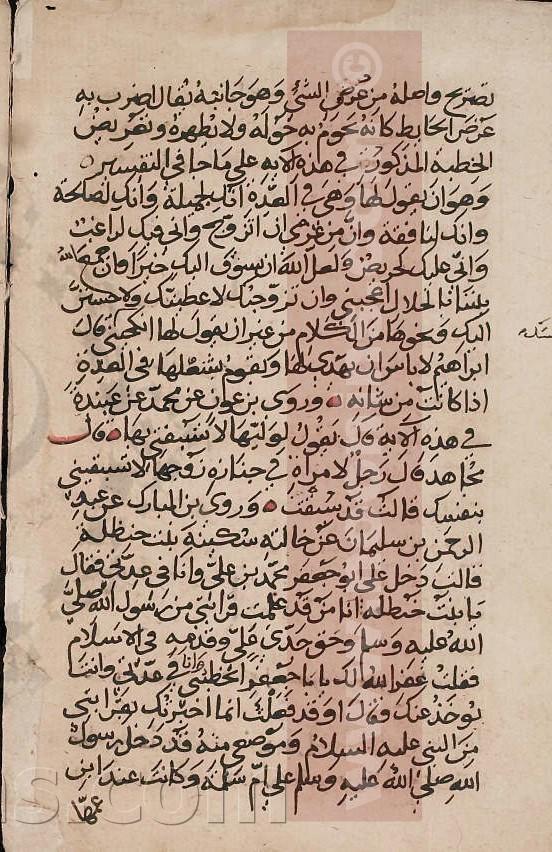 تصريح واصله من عرض الشي وهو جانبه يقال اضرب به
عرض الحايط كانه يحوم به حوله ولا يظهره وتعريض
الخطبة المذكورة في هذه الاية علي ما جا في التفسير
وهو ان يقول لها وهي في العدة انك لجميلة وانك لصالحة
وانك لنافقة وان من غرضي ان اتزوج واني فيك لراغب
واني عليك لحريص ولعل الله ان يسوق اليك خيرا وان جمع الله
بيننا بالحلال اعجبني وان تزوجتك لاعطينك ولاحسنن
اليك ونحوها من الكلام من غير ان يقول لها انكحيني قال
ابراهيم لا باس ان يهدي لها ويقوم بشغلها في العدة
اذا كانت من شانه وروي بن عون عن محمد عن عبيدة
في هذه الاية قال يقول لوليها لا تسبقني بها قال
مجاهد قال رجل لامراة في جنازة زوجها لا تسبقيني
بنفسك قالت قد سبقت وروي بن المبارك عن عبد
الرحمن بن سليمان عن خالته سكينة بنت حنظلة
قالت دخل علي ابو جعفر محمد بن علي وانا في عدتي فقال
يا بنت حنظلة انا من قد علمت قرابتي من رسول الله صلي
الله عليه وسلم وحق جدي علي وقدمه في الاسلام
فقلت غفر الله لك يا ابا جعفر اتخطبني وانا في عدتي وانت
يوخذ عنك فقال او قد فعلت انما اخبرتك بقرابتي
من النبي عليه السلام وموضعي منه قد دخل رسول
الله صلي الله عليه وسلم علي ام سلمة وكانت عند ابن
عمها